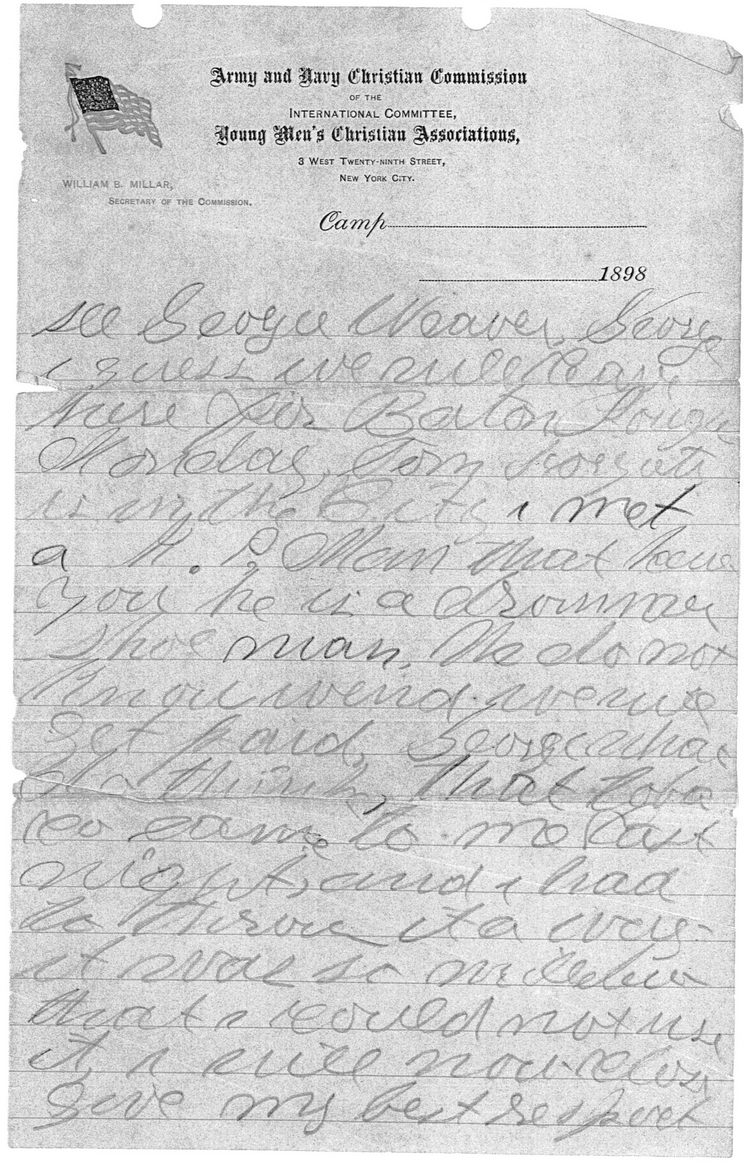 Army and Navy Christian Commission
OF THE
INTERNATIONAL COMMITTEE,
Young Men's Christian Associations,
3 WEST TWENTY-NINTH STREET,
NEW YORK CITY.
WILLIAM B. MILLAR,
SECRETARY OF THE COMMISSION.
Camp
1898
see George Weaver. George
i guess we will
here for Baton Rouge
Monday, Tom
is in the City i met
a H. P. Man that
you he is a
shoe man. We do not
we will
get paid, George what
do think, that
came to me last
night, and i had
to throw it a way
it was so
that i could not use
it, i will now close
give my best respect